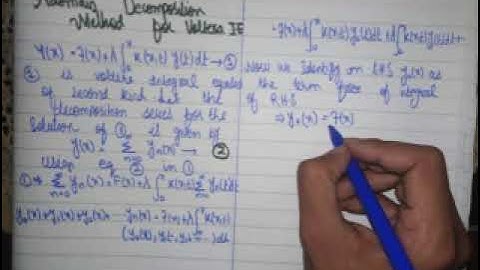 Adomian Decomposition
Method for Voltera IE
y(x) = F(x) + λ∫₀ˣ K(x,t) y(t)dt → ①
① is volterra integral equation
of second kind. Let the
decomposition series for the
Solution of ① is given by
y(x) = Σ yₙ(x) → ②
using eq ② in ①
① ⇒ Σ yₙ(x) = F(x) + λ∫₀ˣ K(x,t) Σ yₙ(t)dt
y₀(x)+y₁(x)+y₂(x)+ ... yₙ(x) = F(x) + λ∫₀ˣ K(x,t)
= F(x) + λ∫₀ˣ K(x,t) y₀(t)dt + λ∫₀ˣ K(x,t) y₁(t)dt +
Now we Identify on LHS y₀(x) as
the term free of integral
of RHS
⇒ y₀(x) = F(x)